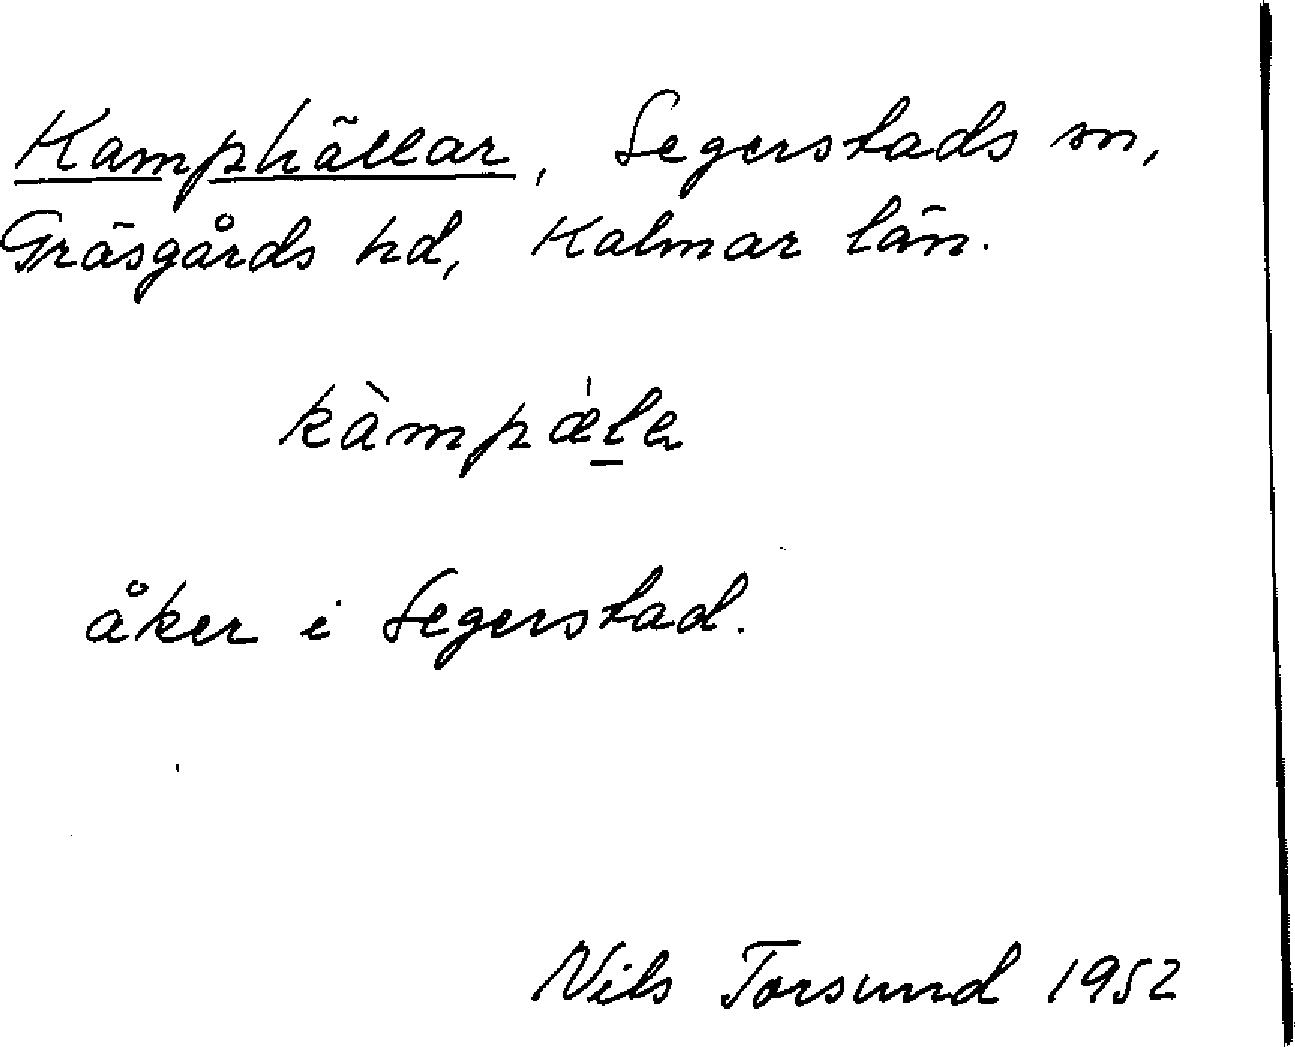 Kamphällar, Segerstads sn,
Gräsgårds hd, Kalmar län.
kàmpæ̍l̲ɐ
åker i Segerstad.
Nils Torsund 1952